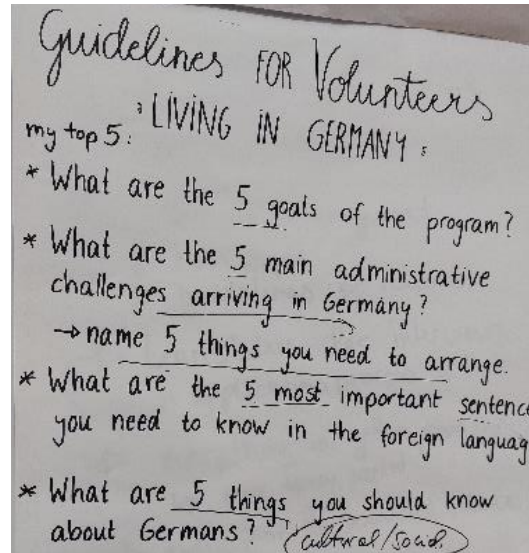 Guidelines FOR Volunteers
: LIVING IN GERMANY :
my top 5:
* What are the 5 goals of the program?
* What are the 5 main administrative
challenges arriving in Germany?
→ name 5 things you need to arrange.
* What are the 5 most important sentence
you need to know in the foreign languag
* What are 5 things you should know
about Germans? (cultural/social)